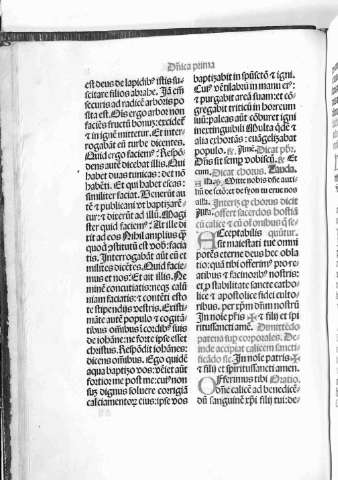 Dñica prima
est deus de lapidibꝰ istis su-
scitare filios abrahe. Jã em̃
securis ad radicẽ arboris po
sita est. Ois ergo arbor non
faciẽs fructũ bonuȝ: excidet᷑
⁊ in ignẽ mittetur. Et inter-
rogabãt eũ turbe dicentes.
Quid ergo faciemꝰ? Respõ-
dens autẽ dicebat illis. Qui
habet duas tunicas: det nõ
habẽti. Et qui habet escas:
similiter faciat. Venerũt aũ
tẽ ⁊ publicani vt baptizarẽ-
tur: ⁊ dixerũt ad illũ. Magi
ster quid faciemꝰ? At ille di-
xit ad eos Nihil ampliꝰ q̃ꝫ
quod ꝯstitutũ est vobis: facia
tis. Interrogabãt aũt eũ et
milites dicẽtes. Quid facie-
mus et nos? Et ait illis. Ne
minẽ concutiatis: neqꝫ calũ
niam faciatis: ⁊ cõtẽti esto
te stipendijs vestris. Existi-
mãte autẽ populo ⁊ cogitã
tibus omnibus ĩ cordibꝰ suis
de iohãne: ne forte ipse esset
christus. Respõdit iohãnes:
dicens omnibus. Ego quidẽ
aqua baptizo vos: vẽiet aũt
fortior me post me: cuiꝰ non
suȝ dignus soluere corrigiã
calciamentorȝ eius: ipse vos
baptizabit in spũsctõ ⁊ igni.
Cuiꝰ vẽtilabrũ in manu eiꝰ:
⁊ purgabit areã suam: et cõ-
gregabit triticũ in horreum
suũ: paleas aũt cõburet igni
inextinguibili Multa q̃dẽ ⁊
alia exhortãs: euãgelizabat
populo. Dicat pbr̃.
Dñs sit semꝑ vobiscũ. Et
cum. Dicat chorus. Lauda.
Mitte nobis dñe auxi-
liũ de sctõ: et de syon tu ere nos
Interĩ q̃ chorus dicit
offert sacerdos hostiã
cũ calice ⁊ cũ oĩbus q̃ se-
Acceptabilis quũtur.
sit maiestati tue omni
potẽs eterne deus hec obla
tio: quã tibi offerimꝰ pro re-
atibus ⁊ facinoribꝰ nostris:
et ꝓ stabilitate sancte catho-
lice ⁊ apostolice fidei culto-
ribus. per xp̃m dñm nostrũ
In noĩe pr̃is ✠ ⁊ filij et spiri-
tussancti amẽ. Dimittẽdo
patena suꝑ corporales. De
inde accipiat calicem sancti-
ficãdo sic. In noĩe patris ✠
⁊ filij et spiritussancti amen.
Offerimus tibi Oratio.
dñe calicẽ ad benedicẽ-
dũ sanguinẽ xp̃i filij tui: de